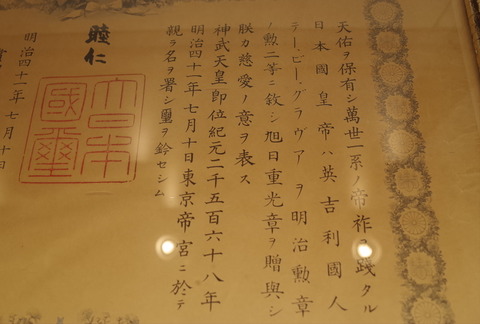 天佑ヲ保有シ萬世一系ノ帝祚ヲ踐タル
日本國皇帝ハ英吉利國人
テー、ビー、グラヴアヲ明治勲章
ノ勲二等ニ敍シ旭日重光章ヲ贈與シ
朕カ慈愛ノ意ヲ表ス
神武天皇即位紀元二千五百六十八年
明治四十一年七月十日東京帝宮ニ於テ
親ラ名ヲ署シ璽ヲ鈐セシム
睦仁
大日本國璽
明治四十一年七月十日